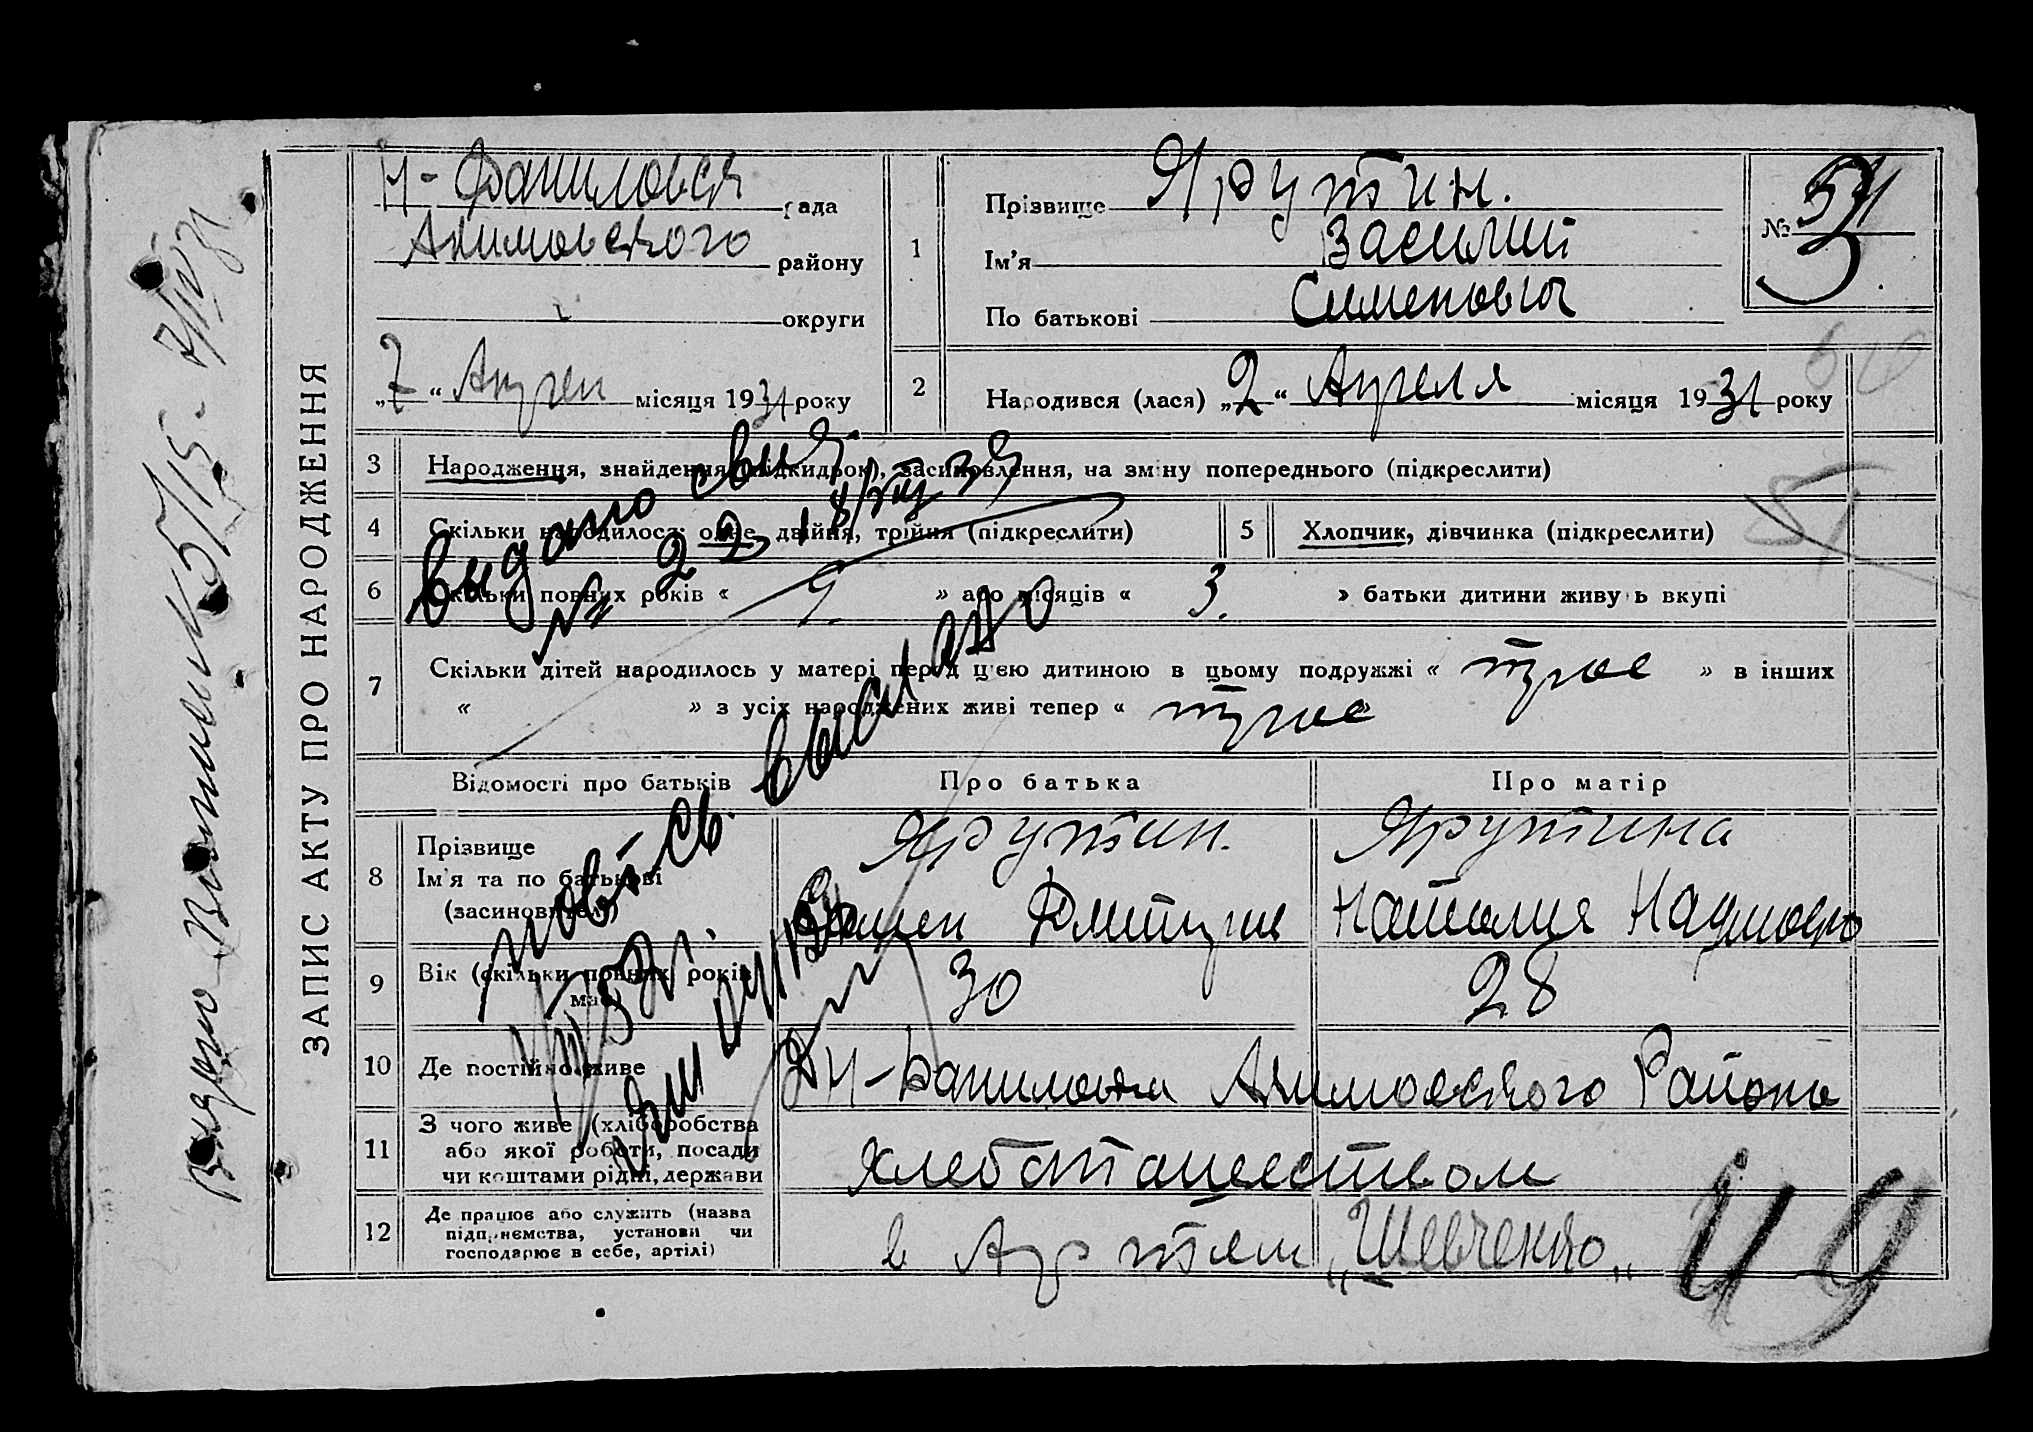 ЗАПИС АКТУ ПРО НАРОДЖЕННЯ
Н-Даниловся рада
Акимовского району
округи
„7“ Апрел місяця 1931 року
1
Прізвище Ярутин.
Ім'я Василий
По батькові Сименович
№ 54
50
2
Народився (лася) „2“ Апреля місяця 1931 року
3 Народження, знайдення (підкидьок), засиновлення, на зміну попереднього (підкреслити)
51
4 Скільки народилося: одне, двійня, трійня (підкреслити)
5 Хлопчик, дівчинка (підкреслити)
6 Скільки повних років « 9. » або місяців « 3. » батьки дитини живуть вкупі
7 Скільки дітей народилось у матері перед цією дитиною в цьому подружжі « трое » в інших
« » з усіх народжених живі тепер « трое »
Відомості про батьків
Про батька
Про матір
8 Прізвище
Ім'я та по батькові
(засиновителі)
Ярутин.
Семен Дмитрие
Ярутина
Наталия Наумовн
9 Вік (скільки повних років
має)
30
28
10 Де постійно живе
Н-Даниловка Акимовского Района
11 З чого живе (хліборобства
або якої роботи, посади
чи коштами рідні, держави
хлебопашеством
12 Де працює або служить (назва
підприємства, установи чи
господарює в себе, артілі)
в Артели „Шевченко„
49
видано свид.
№ 22
нові св. выслано
Видано